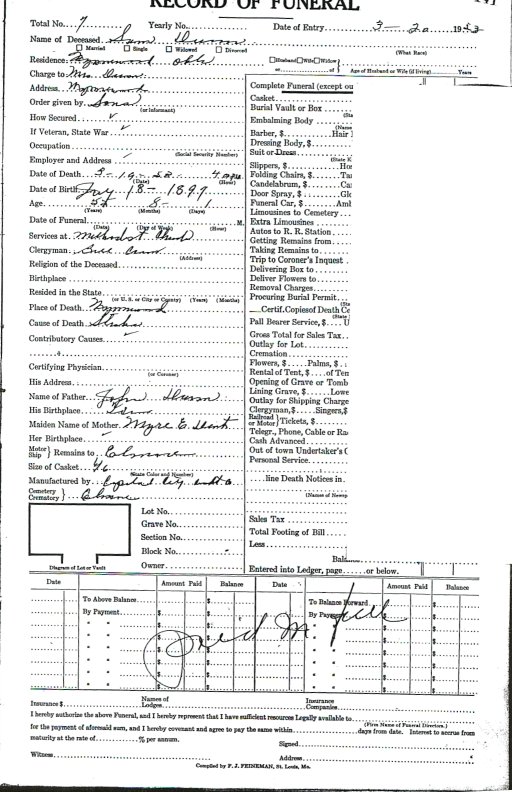 RECORD OF FUNERAL
Total No. 7 Yearly No. Date of Entry 3-20 1953
Name of Deceased Sam Dunn
Married Single Widowed Divorced (What Race)
Residence: Okla Husband Wife Widow
or of Age of Husband or Wife (if living) Years
Charge to Mrs. Dunn
Address
Order given by Sona
(or informant)
How Secured
If Veteran, State War
Occupation
(Social Security Number)
Employer and Address
Date of Death 3-19-53
(Date) (Hour)
Date of Birth July 18-1897
Age 55 8 1
(Years) (Months) (Days)
Date of Funeral M.
(Date) (Day of Week) (Hour)
Services at Methodist Church
(Address)
Clergyman Bill
Religion of the Deceased
Birthplace
Resided in the State
(or U. S. or City or County) (Years) (Months)
Place of Death
Cause of Death Stroke
Contributory Causes
Certifying Physician
(or Coroner)
His Address
Name of Father John Dunn
His Birthplace
Maiden Name of Mother E.
Her Birthplace
Motor Ship } Remains to Elmore
Size of Casket 76
(State Color and Number)
Manufactured by Capital City
Cemetery Crematory } Elmore
Lot No.
Grave No.
Section No.
Block No.
Owner
Diagram of Lot or Vault
Complete Funeral (except ou
Casket
Burial Vault or Box
(Sta
Embalming Body
(Name
Barber, $ Hair
Dressing Body, $
Suit or Dress
(State K
Slippers, $ Ho
Folding Chairs, $ Ta
Candelabrum, $ Ca
Door Spray, $ Glo
Funeral Car, $ Aml
Limousines to Cemetery
Extra Limousines
Autos to R. R. Station
Getting Remains from
Taking Remains to
Trip to Coroner's Inquest
Delivering Box to
Deliver Flowers to
Removal Charges
Procuring Burial Permit
(Sta
Certif. Copies of Death Ce
(State
Pall Bearer Service, $ U
Gross Total for Sales Tax
Outlay for Lot
Cremation
Flowers, $ Palms, $
Rental of Tent, $ of Ten
Opening of Grave or Tomb
Lining Grave, $ Lowe
Outlay for Shipping Charge
Clergyman, $ Singers, $
Railroad or Motor } Tickets, $
Telegr., Phone, Cable or Ra
Cash Advanced
Out of town Undertaker's C
Personal Service
line Death Notices in
(Names of Newsp
Sales Tax
Total Footing of Bill
Less
Bala
Entered into Ledger, page or below.
Date Amount Paid Balance Date Amount Paid Balance
To Above Balance $ To Balance Forward $
By Payment $ By Payment $
Paid in full
Insurance $ Names of Lodges Insurance Companies
I hereby authorize the above Funeral, and I hereby represent that I have sufficient resources Legally available to
(Firm Name of Funeral Directors.)
for the payment of aforesaid sum, and I hereby covenant and agree to pay the same within days from date. Interest to accrue from
maturity at the rate of % per annum.
Signed
Witness Address
Compiled by F. J. FEINEMAN, St. Louis, Mo.